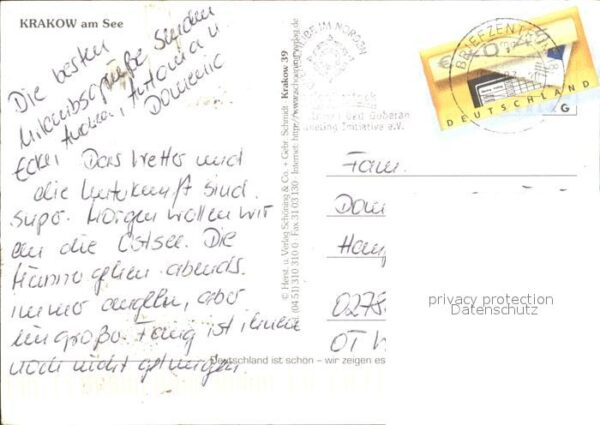 KRAKOW am See
Die besten
Urlaubsgrüße senden
Andrea, Antonia u
Domenic
Ecke, Das Wetter und
die Unterkunft sind
super. Morgen wollen wir
an die Ostsee. Die
Männer gehen abends
immer angeln, aber
ein großer Fang ist ihnen
noch nicht gelungen.
© Herst. u. Verlag Schöning & Co. + Gebr. Schmidt Krakow 39
Tel. (04 51) 310 310 0 · Fax 31 03 130 · Internet: http://www.schoening-verlag.de
BRIEFZENTRUM 18
DEUTSCHLAND
Bad Doberan
Initiative e.V.
Fam.
Dom
0275
OT
privacy protection
Datenschutz
Deutschland ist schön – wir zeigen es